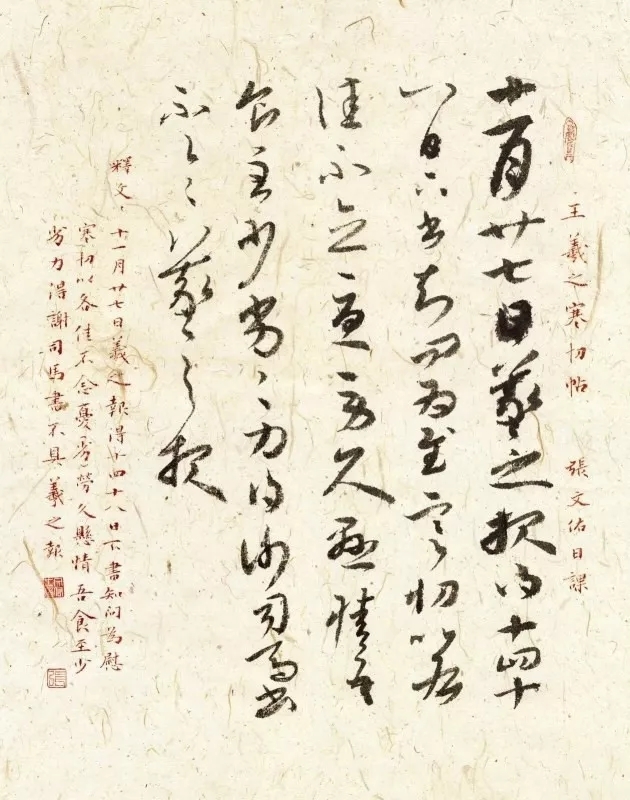 王羲之寒切帖 張文佑日課
十一月廿七日羲之報得十四十
八日二書知問為慰寒切比各
佳不念憂勞久懸情吾
食至少劣劣力因謝司馬書
不具羲之報
釋文：十一月廿七日羲之報得十四十八日下書知問為慰
寒切以各佳不念憂勞久懸情吾食至少
劣力得謝司馬書不具羲之報